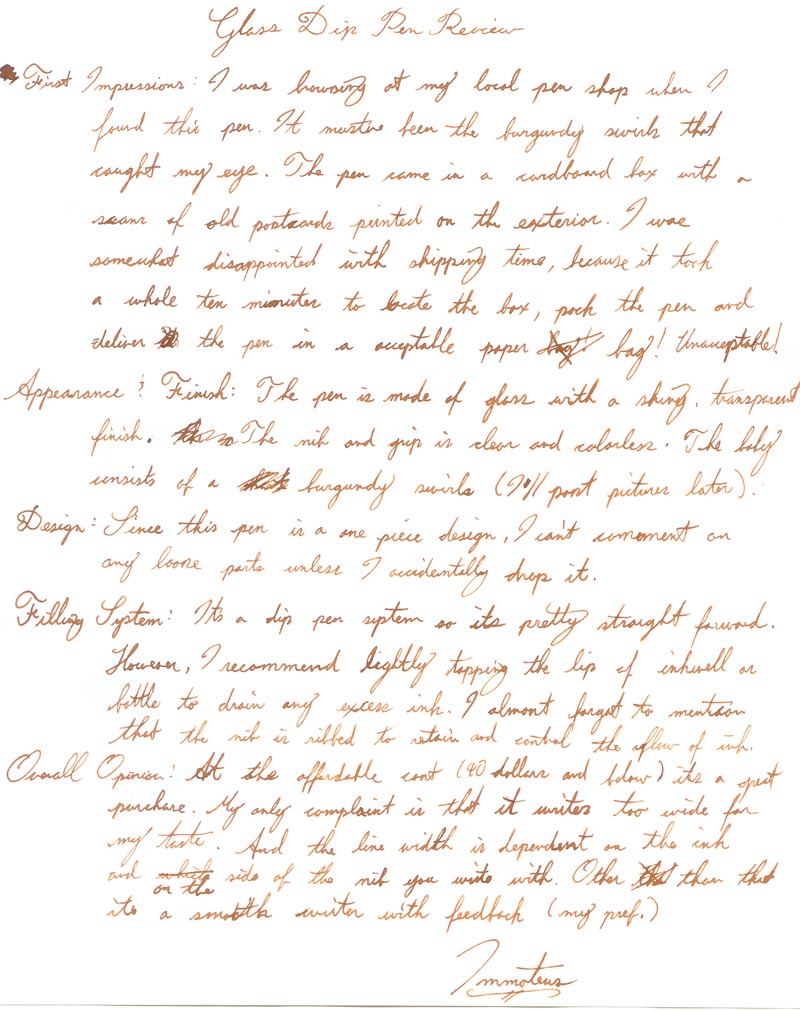 Glass Dip Pen Review
First Impressions: I was browsing at my local pen shop when I
found this pen. It must've been the burgundy swirls that
caught my eye. The pen came in a cardboard box with a
scans of old postcards printed on the exterior. I was
somewhat disappointed with shipping time, because it took
a whole ten minutes to locate the box, pack the pen and
deliver the pen in a acceptable paper bag! bag! Unacceptable!
Appearance & Finish: The pen is made of glass with a shiny, transparent
finish. The nib and grip is clear and colorless. The body
consists of a burgundy swirls (I'll post pictures later).
Design: Since this pen is a one piece design, I can't comment on
any loose parts unless I accidentally drop it.
Filling System: It's a dip pen system so its pretty straight forward.
However, I recommend lightly tapping the lip of inkwell or
bottle to drain any excess ink. I almost forgot to mention
that the nib is ribbed to retain and control the flow of ink.
Overall Opinion: At the affordable cost (40 dollars and below) its a great
purchase. My only complaint is that it writes too wide for
my taste. And the line width is dependent on the ink
and which side of the nib you write with. Other than that
on the
its a smooth writer with feedback (my pref.)
Immoteus